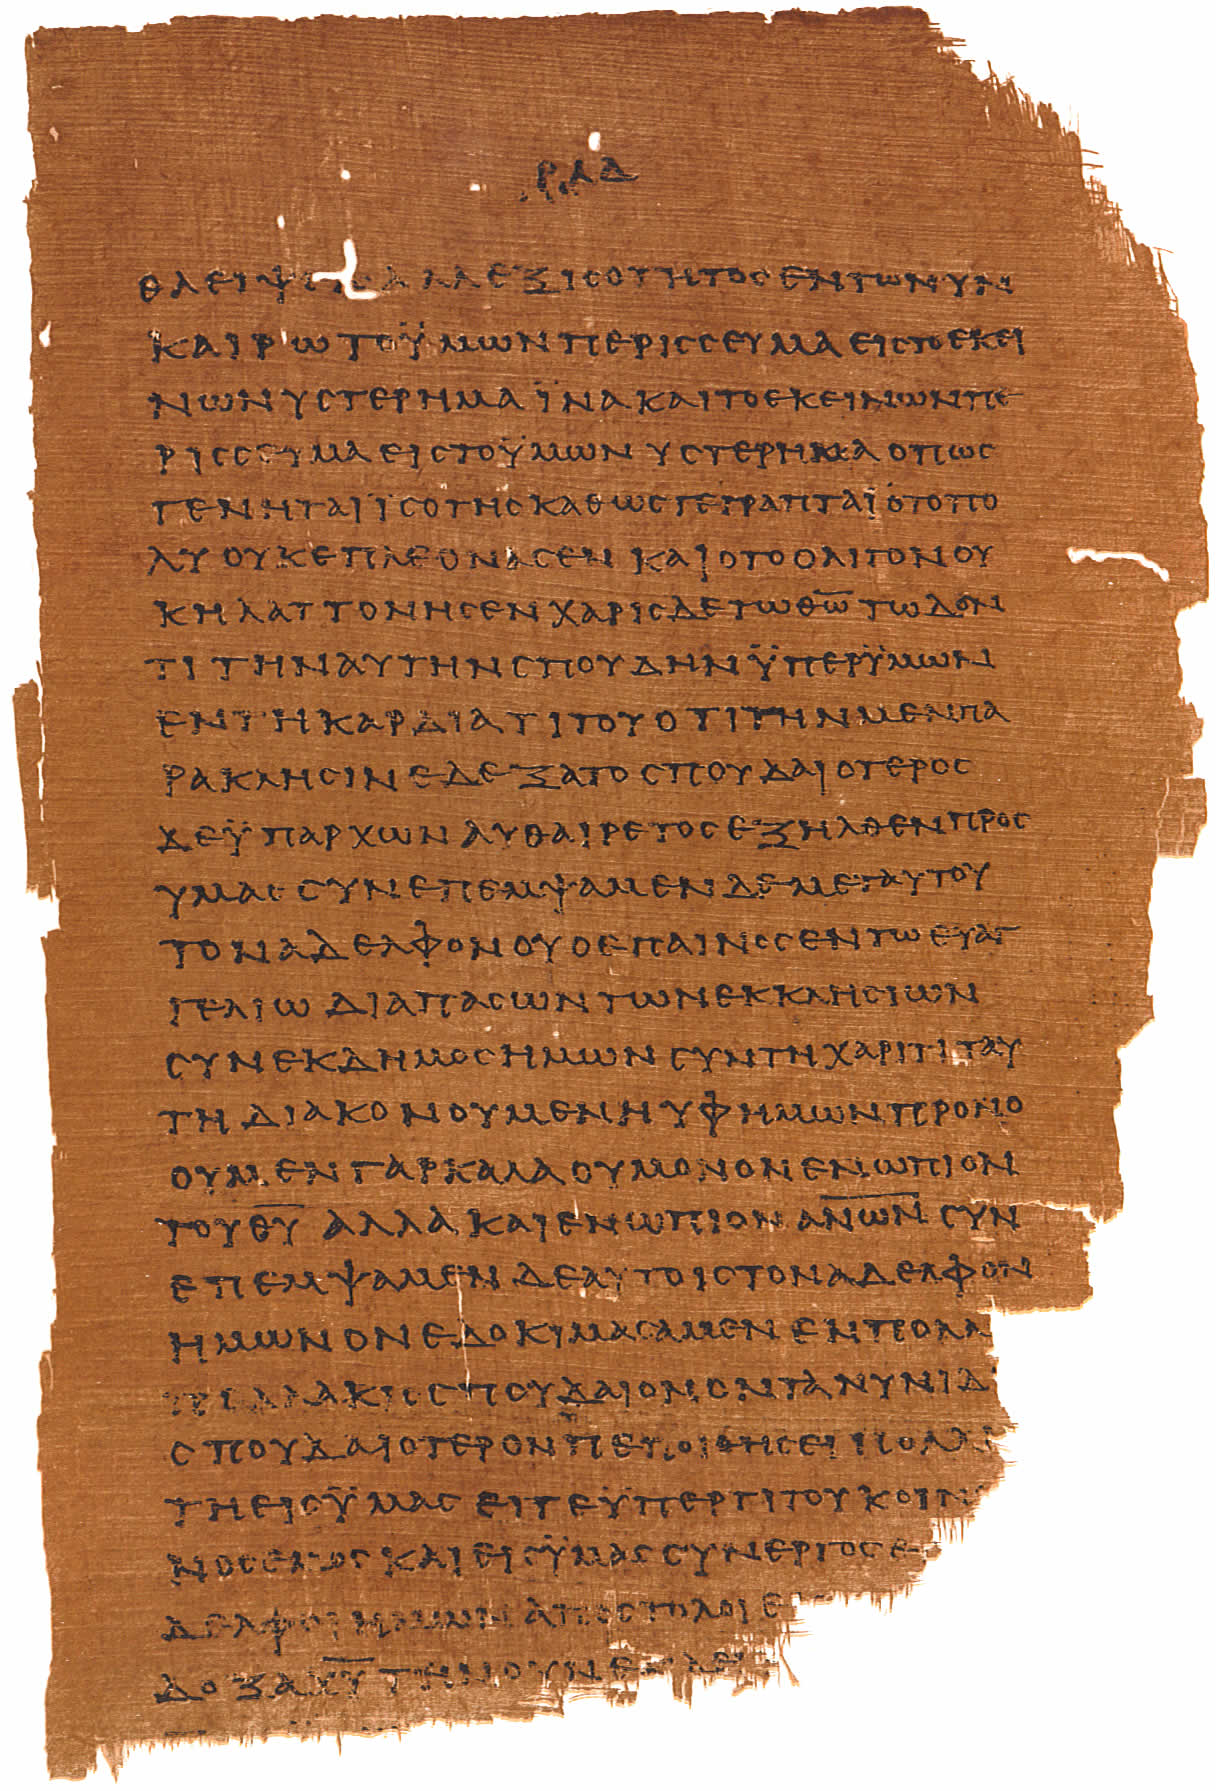 ΡΛΔ
ΘΛΕΙΨΙϹ ΑΛΛ ΕΞ ΙϹΟΤΗΤΟϹ ΕΝ ΤΩ ΝΥΝ
ΚΑΙΡΩ ΤΟ ΫΜΩΝ ΠΕΡΙϹϹΕΥΜΑ ΕΙϹ ΤΟ ΕΚΕΙ
ΝΩΝ ΥϹΤΕΡΗΜΑ ΪΝΑ ΚΑΙ ΤΟ ΕΚΕΙΝΩΝ ΠΕ
ΡΙϹϹΕΥΜΑ ΕΙϹ ΤΟ ΫΜΩΝ ΥϹΤΕΡΗΜΑ ΟΠΩϹ
ΓΕΝΗΤΑΙ ΪϹΟΤΗϹ ΚΑΘΩϹ ΓΕΓΡΑΠΤΑΙ Ο ΤΟ ΠΟ
ΛΥ ΟΥΚ ΕΠΛΕΟΝΑϹΕΝ ΚΑΙ Ο ΤΟ ΟΛΙΓΟΝ ΟΥ
Κ ΗΛΑΤΤΟΝΗϹΕΝ ΧΑΡΙϹ ΔΕ ΤΩ Θ̅Ω̅ ΤΩ ΔΟΝ
ΤΙ ΤΗΝ ΑΥΤΗΝ ϹΠΟΥΔΗΝ ΫΠΕΡ ΫΜΩΝ
ΕΝ ΤΗ ΚΑΡΔΙΑ ΤΙΤΟΥ ΟΤΙ ΤΗΝ ΜΕΝ ΠΑ
ΡΑΚΛΗϹΙΝ ΕΔΕΞΑΤΟ ϹΠΟΥΔΑΙΟΤΕΡΟϹ
ΔΕ ΫΠΑΡΧΩΝ ΑΥΘΑΙΡΕΤΟϹ ΕΞΗΛΘΕΝ ΠΡΟϹ
ΥΜΑϹ ϹΥΝΕΠΕΜΨΑΜΕΝ ΔΕ ΜΕΤ ΑΥΤΟΥ
ΤΟΝ ΑΔΕΛΦΟΝ ΟΥ Ο ΕΠΑΙΝΟϹ ΕΝ ΤΩ ΕΥΑΓ
ΓΕΛΙΩ ΔΙΑ ΠΑϹΩΝ ΤΩΝ ΕΚΚΛΗϹΙΩΝ
ϹΥΝΕΚΔΗΜΟϹ ΗΜΩΝ ϹΥΝ ΤΗ ΧΑΡΙΤΙ ΤΑΥ
ΤΗ ΔΙΑΚΟΝΟΥΜΕΝΗ ΥΦ ΗΜΩΝ ΠΡΟΝΟ
ΟΥΜΕΝ ΓΑΡ ΚΑΛΑ ΟΥ ΜΟΝΟΝ ΕΝΩΠΙΟΝ
ΤΟΥ Θ̅Υ̅ ΑΛΛΑ ΚΑΙ ΕΝΩΠΙΟΝ Α̅Ν̅Ω̅Ν̅ ϹΥΝ
ΕΠΕΜΨΑΜΕΝ ΔΕ ΑΥΤΟΙϹ ΤΟΝ ΑΔΕΛΦΟΝ
ΗΜΩΝ ΟΝ ΕΔΟΚΙΜΑϹΑΜΕΝ ΕΝ ΠΟΛΛ
ΠΟΛΛΑΚΙϹ ϹΠΟΥΔΑΙΟΝ ΟΝΤΑ ΝΥΝΙ Δ
ϹΠΟΥΔΑΙΟΤΕΡΟΝ ΠΕΠΟΙΘΗϹΕΙ ΠΟΛΛ
ΤΗ ΕΙϹ ΫΜΑϹ ΕΙΤΕ ΫΠΕΡ ΤΙΤΟΥ ΚΟΙΝ
ΝΟϹ ΕΜΟϹ ΚΑΙ ΕΙϹ ΫΜΑϹ ϹΥΝΕΡΓΟϹ Ε
ΔΕΛΦΟΙ ΗΜΩΝ ΑΠΟϹΤΟΛΟΙ Ε
ΔΟΞΑ Χ̅Υ̅ ΤΗΝ ΟΥΝ ΕΝΔΕΙ